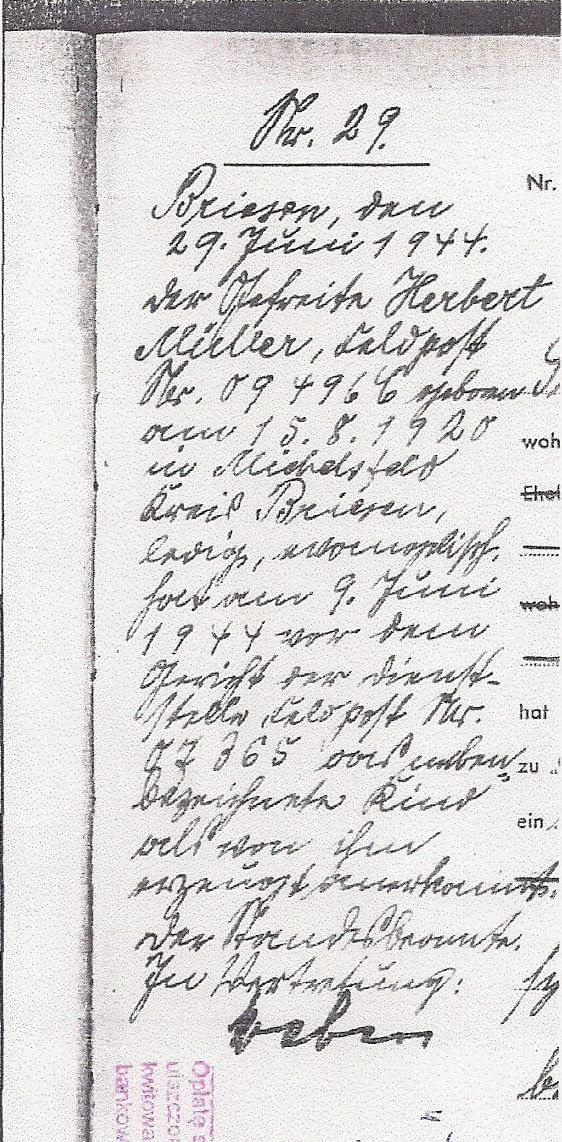 Nr. 29.
Briesen, den
29. Juni 1944.
Der Gefreite Herbert
Müller, Feldpost
Nr. 09496 C geboren
am 15.8.1920
in Michelsfeld
Kreis Briesen,
ledig, evangelisch,
hat am 9. Juni
1944 vor dem
Gericht der Dienst-
stelle Feldpost Nr.
07365 das neben
bezeichnete Kind
als von ihm
erzeugt anerkannt.
Der Standesbeamte.
In Vertretung:
Nr.
woh
Ehe
woh
hat
zu
ein
Opłatę s
uiszczo
kwitowa
bankow